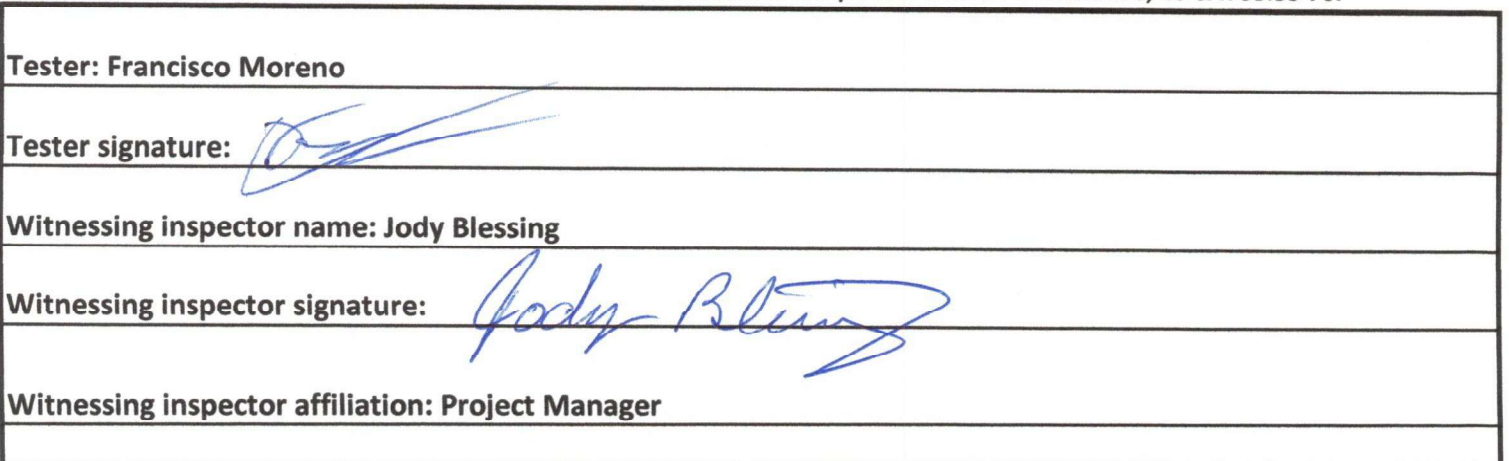 Tester: Francisco Moreno
Tester signature:
Witnessing inspector name: Jody Blessing
Witnessing inspector signature: Jody Blessing
Witnessing inspector affiliation: Project Manager